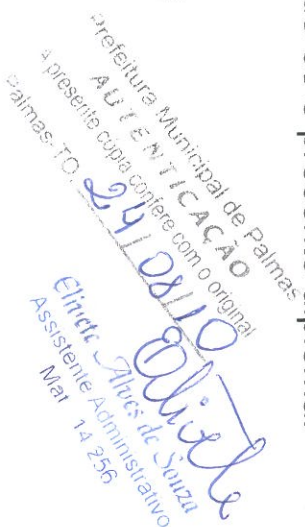 Prefeitura Municipal de Palmas
AUTENTICAÇÃO
A presente cópia confere com o original
Palmas-TO, 24 08 10
Elinete Alves de Souza
Assistente Administrativo
Mat 14 256